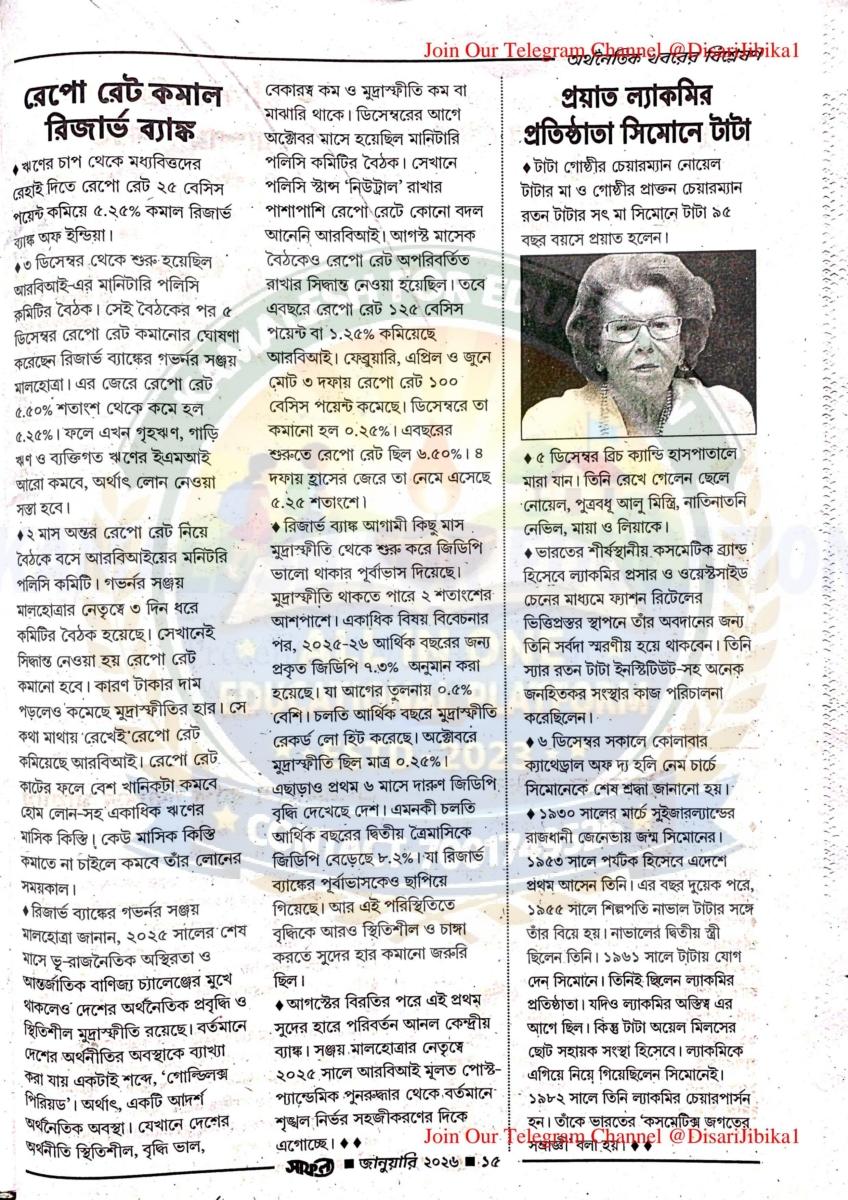 Join Our Telegram Channel @DisariJibika1
অর্থনৈতিক খবরের বিশ্লেষণ
রেপো রেট কমাল
রিজার্ভ ব্যাঙ্ক
♦ঋণের চাপ থেকে মধ্যবিত্তদের
রেহাই দিতে রেপো রেট ২৫ বেসিস
পয়েন্ট কমিয়ে ৫.২৫% কমাল রিজার্ভ
ব্যাঙ্ক অফ ইন্ডিয়া।
♦৩ ডিসেম্বর থেকে শুরু হয়েছিল
আরবিআই-এর মানিটারি পলিসি
কমিটির বৈঠক। সেই বৈঠকের পর ৫
ডিসেম্বর রেপো রেট কমানোর ঘোষণা
করেছেন রিজার্ভ ব্যাঙ্কের গভর্নর সঞ্জয়
মালহোত্রা। এর জেরে রেপো রেট
৫.৫০% শতাংশ থেকে কমে হল
৫.২৫%। ফলে এখন গৃহঋণ, গাড়ি
ঋণ ও ব্যক্তিগত ঋণের ইএমআই
আরো কমবে, অর্থাৎ লোন নেওয়া
সস্তা হবে।
♦২ মাস অন্তর রেপো রেট নিয়ে
বৈঠকে বসে আরবিআইয়ের মনিটরি
পলিসি কমিটি। গভর্নর সঞ্জয়
মালহোত্রার নেতৃত্বে ৩ দিন ধরে
কমিটির বৈঠক হয়েছে। সেখানেই
সিদ্ধান্ত নেওয়া হয় রেপো রেট
কমানো হবে। কারণ টাকার দাম
পড়লেও কমেছে মুদ্রাস্ফীতির হার। সে
কথা মাথায় রেখেই রেপো রেট
কমিয়েছে আরবিআই। রেপো রেট
কাটের ফলে বেশ খানিকটা কমবে
হোম লোন-সহ একাধিক ঋণের
মাসিক কিস্তি। কেউ মাসিক কিস্তি
কমাতে না চাইলে কমবে তাঁর লোনের
সময়কাল।
♦রিজার্ভ ব্যাঙ্কের গভর্নর সঞ্জয়
মালহোত্রা জানান, ২০২৫ সালের শেষ
মাসে ভূ-রাজনৈতিক অস্থিরতা ও
আন্তর্জাতিক বাণিজ্য চ্যালেঞ্জের মুখে
থাকলেও দেশের অর্থনৈতিক প্রবৃদ্ধি ও
স্থিতিশীল মুদ্রাস্ফীতি রয়েছে। বর্তমানে
দেশের অর্থনীতির অবস্থাকে ব্যাখ্যা
করা যায় একটাই শব্দে, ‘গোল্ডিলক্স
পিরিয়ড’। অর্থাৎ, একটি আদর্শ
অর্থনৈতিক অবস্থা। যেখানে দেশের
অর্থনীতি স্থিতিশীল, বৃদ্ধি ভাল,
বেকারত্ব কম ও মুদ্রাস্ফীতি কম বা
মাঝারি থাকে। ডিসেম্বরের আগে
অক্টোবর মাসে হয়েছিল মানিটারি
পলিসি কমিটির বৈঠক। সেখানে
পলিসি স্টান্স ‘নিউট্রাল’ রাখার
পাশাপাশি রেপো রেটে কোনো বদল
আনেনি আরবিআই। আগস্ট মাসেক
বৈঠকেও রেপো রেট অপরিবর্তিত
রাখার সিদ্ধান্ত নেওয়া হয়েছিল। তবে
এবছরে রেপো রেট ১২৫ বেসিস
পয়েন্ট বা ১.২৫% কমিয়েছে
আরবিআই। ফেব্রুয়ারি, এপ্রিল ও জুনে
মোট ৩ দফায় রেপো রেট ১০০
বেসিস পয়েন্ট কমেছে। ডিসেম্বরে তা
কমানো হল ০.২৫%। এবছরের
শুরুতে রেপো রেট ছিল ৬.৫০%। ৪
দফায় হ্রাসের জেরে তা নেমে এসেছে
৫.২৫ শতাংশে।
♦রিজার্ভ ব্যাঙ্ক আগামী কিছু মাস
মুদ্রাস্ফীতি থেকে শুরু করে জিডিপি
ভালো থাকার পূর্বাভাস দিয়েছে।
মুদ্রাস্ফীতি থাকতে পারে ২ শতাংশের
আশপাশে। একাধিক বিষয় বিবেচনার
পর, ২০২৫-২৬ আর্থিক বছরের জন্য
প্রকৃত জিডিপি ৭.৩% অনুমান করা
হয়েছে। যা আগের তুলনায় ০.৫%
বেশি। চলতি আর্থিক বছরে মুদ্রাস্ফীতি
রেকর্ড লো হিট করেছে। অক্টোবরে
মুদ্রাস্ফীতি ছিল মাত্র ০.২৫%।
এছাড়াও প্রথম ৬ মাসে দারুণ জিডিপি
বৃদ্ধি দেখেছে দেশ। এমনকী চলতি
আর্থিক বছরের দ্বিতীয় ত্রৈমাসিকে
জিডিপি বেড়েছে ৮.২%। যা রিজার্ভ
ব্যাঙ্কের পূর্বাভাসকেও ছাপিয়ে
গিয়েছে। আর এই পরিস্থিতিতে
বৃদ্ধিকে আরও স্থিতিশীল ও চাঙ্গা
করতে সুদের হার কমানো জরুরি
ছিল।
♦আগস্টের বিরতির পরে এই প্রথম
সুদের হারে পরিবর্তন আনল কেন্দ্রীয়
ব্যাংক। সঞ্জয় মালহোত্রার নেতৃত্বে
২০২৫ সালে আরবিআই মূলত পোস্ট-
প্যান্ডেমিক পুনরুদ্ধার থেকে বর্তমানে
শৃঙ্খল নির্ভর সহজীকরণের দিকে
এগোচ্ছে।♦♦
প্রয়াত ল্যাকমির
প্রতিষ্ঠাতা সিমোনে টাটা
♦টাটা গোষ্ঠীর চেয়ারম্যান নোয়েল
টাটার মা ও গোষ্ঠীর প্রাক্তন চেয়ারম্যান
রতন টাটার সৎ মা সিমোনে টাটা ৯৫
বছর বয়সে প্রয়াত হলেন।
♦৫ ডিসেম্বর ব্রিচ ক্যান্ডি হাসপাতালে
মারা যান। তিনি রেখে গেলেন ছেলে
নোয়েল, পুত্রবধূ আলু মিস্ত্রি, নাতিনাতনি
নেভিল, মায়া ও লিয়াকে।
♦ভারতের শীর্ষস্থানীয় কসমেটিক ব্র্যান্ড
হিসেবে ল্যাকমির প্রসার ও ওয়েস্টসাইড
চেনের মাধ্যমে ফ্যাশন রিটেলের
ভিত্তিপ্রস্তর স্থাপনে তাঁর অবদানের জন্য
তিনি সর্বদা স্মরণীয় হয়ে থাকবেন। তিনি
স্যার রতন টাটা ইনস্টিটিউট-সহ অনেক
জনহিতকর সংস্থার কাজ পরিচালনা
করেছিলেন।
♦৬ ডিসেম্বর সকালে কোলাবার
ক্যাথেড্রাল অফ দ্য হলি নেম চার্চে
সিমোনেকে শেষ শ্রদ্ধা জানানো হয়।
♦১৯৩০ সালের মার্চে সুইজারল্যান্ডের
রাজধানী জেনেভায় জন্ম সিমোনের।
১৯৫৩ সালে পর্যটক হিসেবে এদেশে
প্রথম আসেন তিনি। এর বছর দুয়েক পরে,
১৯৫৫ সালে শিল্পপতি নাভাল টাটার সঙ্গে
তাঁর বিয়ে হয়। নাভালের দ্বিতীয় স্ত্রী
ছিলেন তিনি। ১৯৬১ সালে টাটায় যোগ
দেন সিমোনে। তিনিই ছিলেন ল্যাকমির
প্রতিষ্ঠাতা। যদিও ল্যাকমির অস্তিত্ব এর
আগে ছিল। কিন্তু টাটা অয়েল মিলসের
ছোট সহায়ক সংস্থা হিসেবে। ল্যাকমিকে
এগিয়ে নিয়ে গিয়েছিলেন সিমোনেই।
১৯৮২ সালে তিনি ল্যাকমির চেয়ারপার্সন
হন। তাঁকে ভারতের ‘কসমেটিক্স জগতের
সম্রাজ্ঞী’ বলা হয়।♦♦
Join Our Telegram Channel @DisariJibika1
সাফল্য ■ জানুয়ারি ২০২৬ ■ ১৫